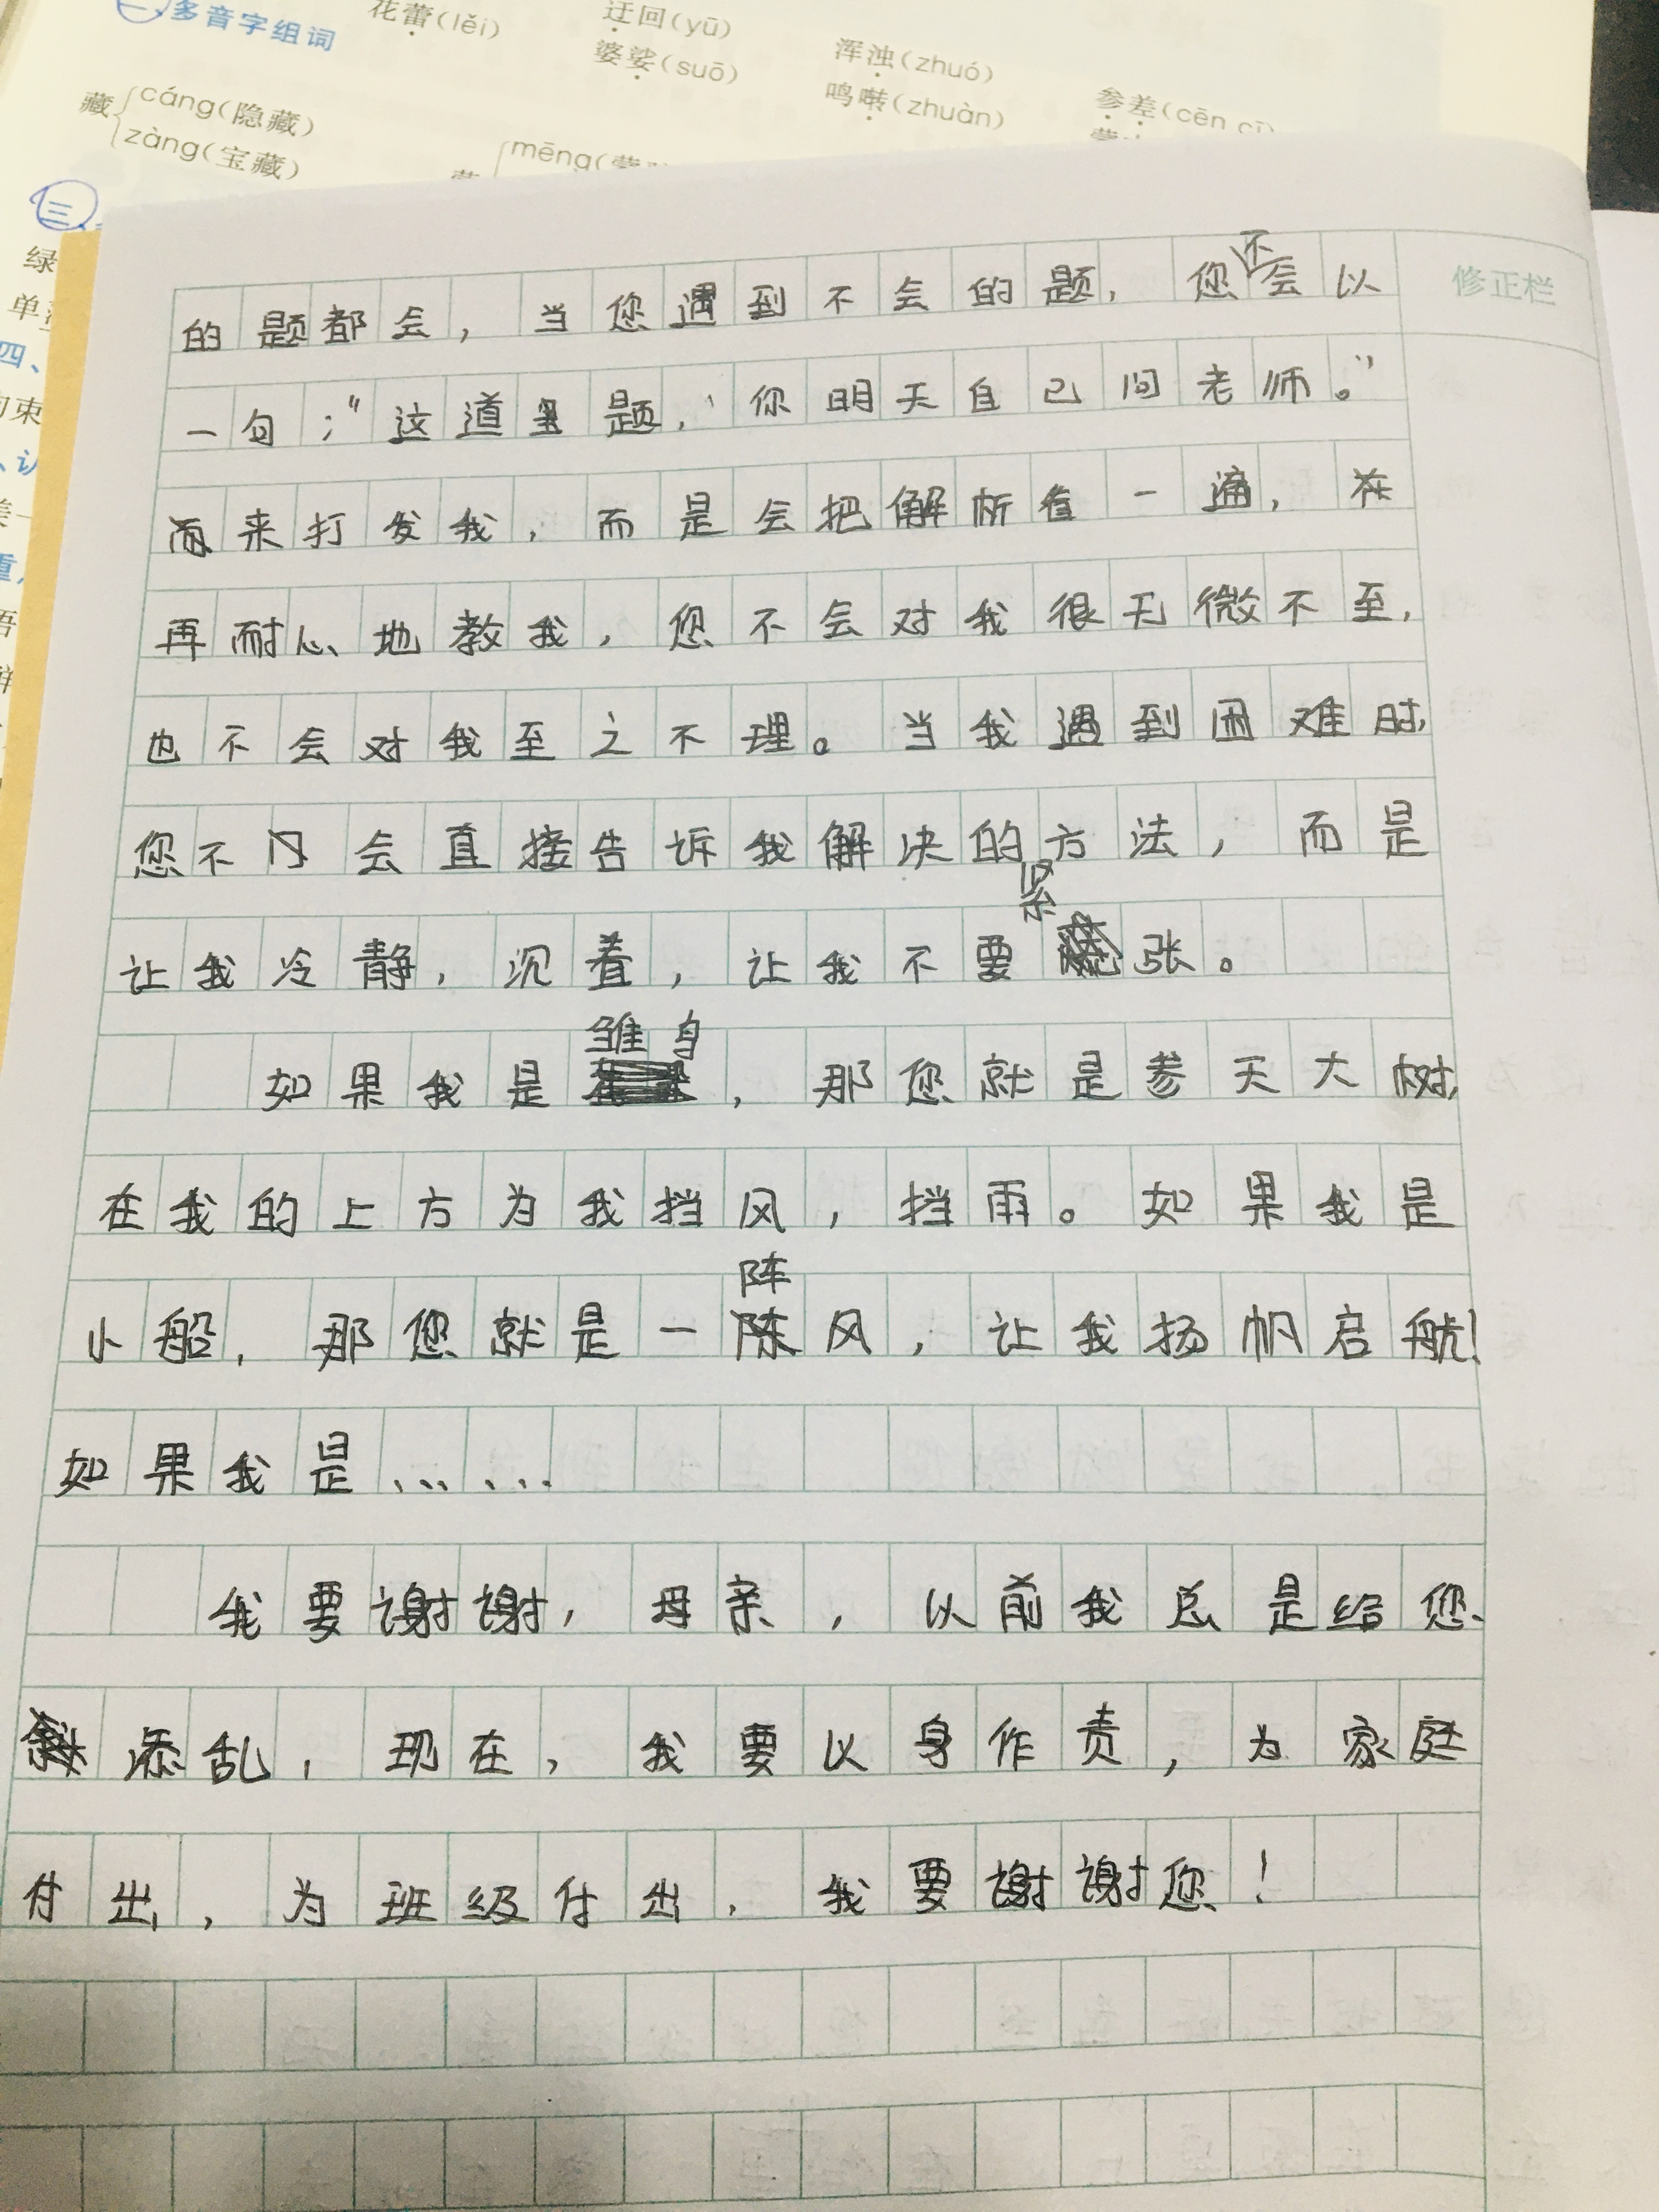 多音字组词
花蕾(lěi)
迂回(yū)
婆娑(suō)
浑浊(zhuó)
鸣啭(zhuàn)
参差(cēn cī)
藏
cáng(隐藏)
zàng(宝藏)
mēng(
三
绿
单
四、
修正栏
的题都会，当您遇到不会的题，您不会以
一句；“这道题，你明天自己问老师。”
而来打发我，而是会把解析看一遍，在
再耐心地教我，您不会对我很无微不至，
也不会对我至之不理。当我遇到困难时，
您不会直接告诉我解决的方法，而是
让我冷静，沉着，让我不要紧张。
如果我是雏鸟，那您就是参天大树，
在我的上方为我挡风，挡雨。如果我是
小船，那您就是一阵风，让我扬帆启航！
如果我是……
我要谢谢，母亲，以前我总是给您
添乱，现在，我要以身作责，为家庭
付出，为班级付出，我要谢谢您！